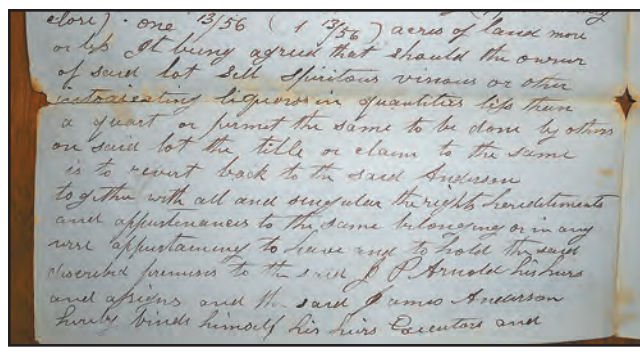 clore). one 13/56 ( 1 13/56 ) acres of land more
or less It being agreed that should the owner
of said lot sell spiritous vinous or other
intoxicating liquors in quantities less than
a quart or permit the same to be done by others
on said lot the title or claim to the same
is to revert back to the said Anderson
together with all and singular the rights hereditiments
and appurtenances to the same belonging or in any
wise appertaining to have and to hold the said
described premises to the said J P Arnold his heirs
and assigns and the said James Anderson
hereby binds himself his heirs Executors and